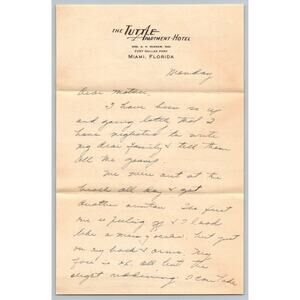 THE TUTTLE
APARTMENT-HOTEL
FORT DALLAS PARK
MIAMI, FLORIDA
Monday
Dear Mother,
I have been so up
and going lately that I
have neglected to write
my dear family & tell them
all the
We were out at the
beach all day & got
another suntan. The first
one is peeling & I look
like a but just
on my back & arms. My
face is all but the
slight reddening. I can take